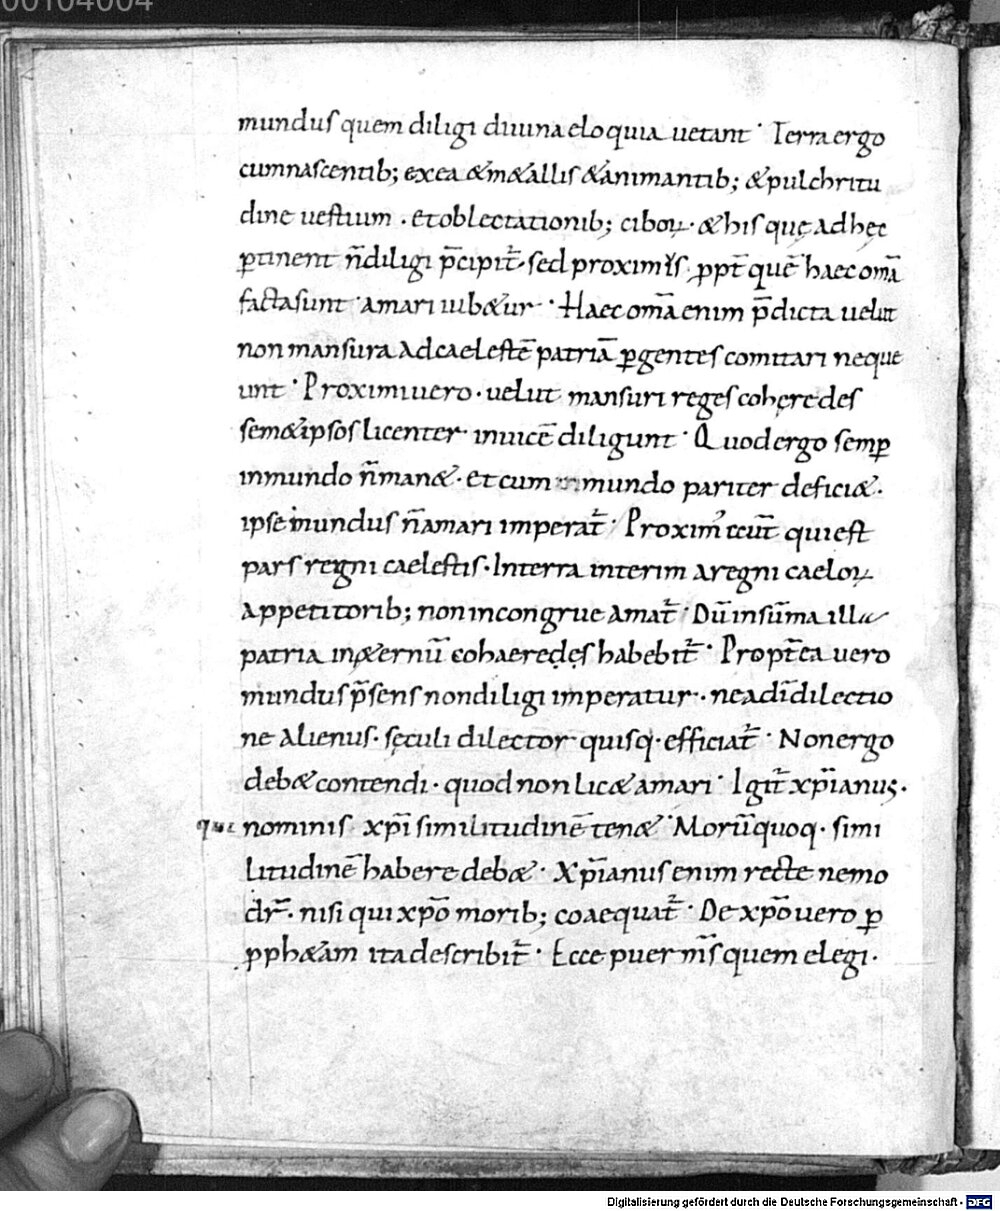 00104004
mundus quem diligi diuina eloquia uetant · Terra ergo
cum nascentib; ex ea & m&allis & animantib; & pulchritu
dine uestium · et oblectationib; ciboꝝ · & his quę ad hęc
ꝑtinent n̄ diligi p̄cipit̄ · sed proximis, ꝓpt̄ quē haec om̄a
facta sunt · amari iub&ur · Haec om̄a enim p̄dicta uelut
non mansura ad caelestē patriā ꝑgentes comitari neque
unt · Proximi uero · uelut mansuri reges cohęredes
sem&ipsos licenter inuicē diligunt · Quod ergo semꝑ
in mundo n̄ man& · et cum mundo pariter defici& ·
ipse mundus n̄ amari imperat̄ · Proximꝰ ceut̄ qui est
pars regni caelestis · In terra interim a regni caeloꝝ
appetitorib; non incongrue amat̄ · Dū in sūma illa
patria in &ernū cohaeredes habebit̄ · Propt̄ea uero
mundus p̄sens non diligi imperatur · ne a dī dilectio
ne alienus · sęculi dilector quisq · efficiat̄ · Non ergo
deb& contendi · quod non lic& amari · Igit̄ xp̄ianus ·
qui nominis xp̄i similitudinē ten& · Morū quoq · simi
litudinē habere deb& · Xp̄ianus enim recte nemo
dr̄ · nisi qui xp̄o morib; coaequat̄ · De xp̄o uero ꝑ
pph&am ita describit̄ · Ecce puer m̄s quem elegi ·
Digitalisierung gefördert durch die Deutsche Forschungsgemeinschaft - DFG